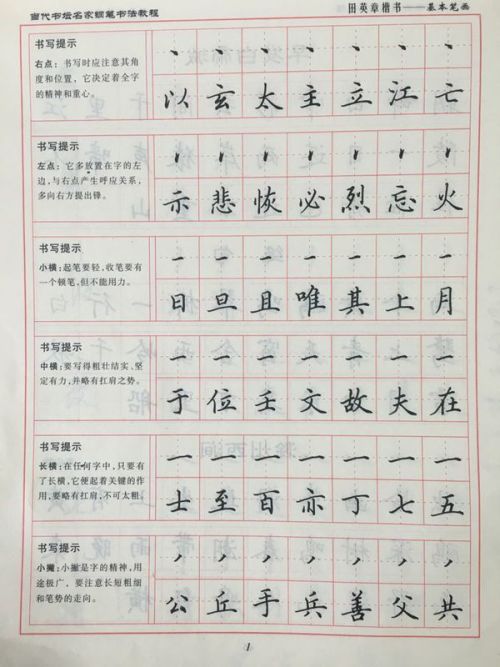 当代书坛名家钢笔书法教程
田英章楷书——基本笔画
书写提示
右点：书写时应注意其角
度和位置，它决定着全字
的精神和重心。
以 玄 太 主 立 江 亡
书写提示
左点：它多放置在字的左
边，与右点产生呼应关系，
多向右方提出锋。
示 悲 恢 必 烈 忘 火
书写提示
小横：起笔要轻，收笔要有
一个顿笔，但不能用力。
日 旦 且 唯 其 上 月
书写提示
中横：要写得粗壮结实、坚
定有力，并略有扛肩之势。
于 位 壬 文 故 夫 在
书写提示
长横：在任何字中，只要有
了长横，它便起着关键的作
用，要略有扛肩，不可太粗。
士 至 百 亦 丁 七 五
书写提示
小撇：小撇是字的精神，用
途极广，要注意长短粗细
和笔势的走向。
公 丘 手 兵 善 父 共
1